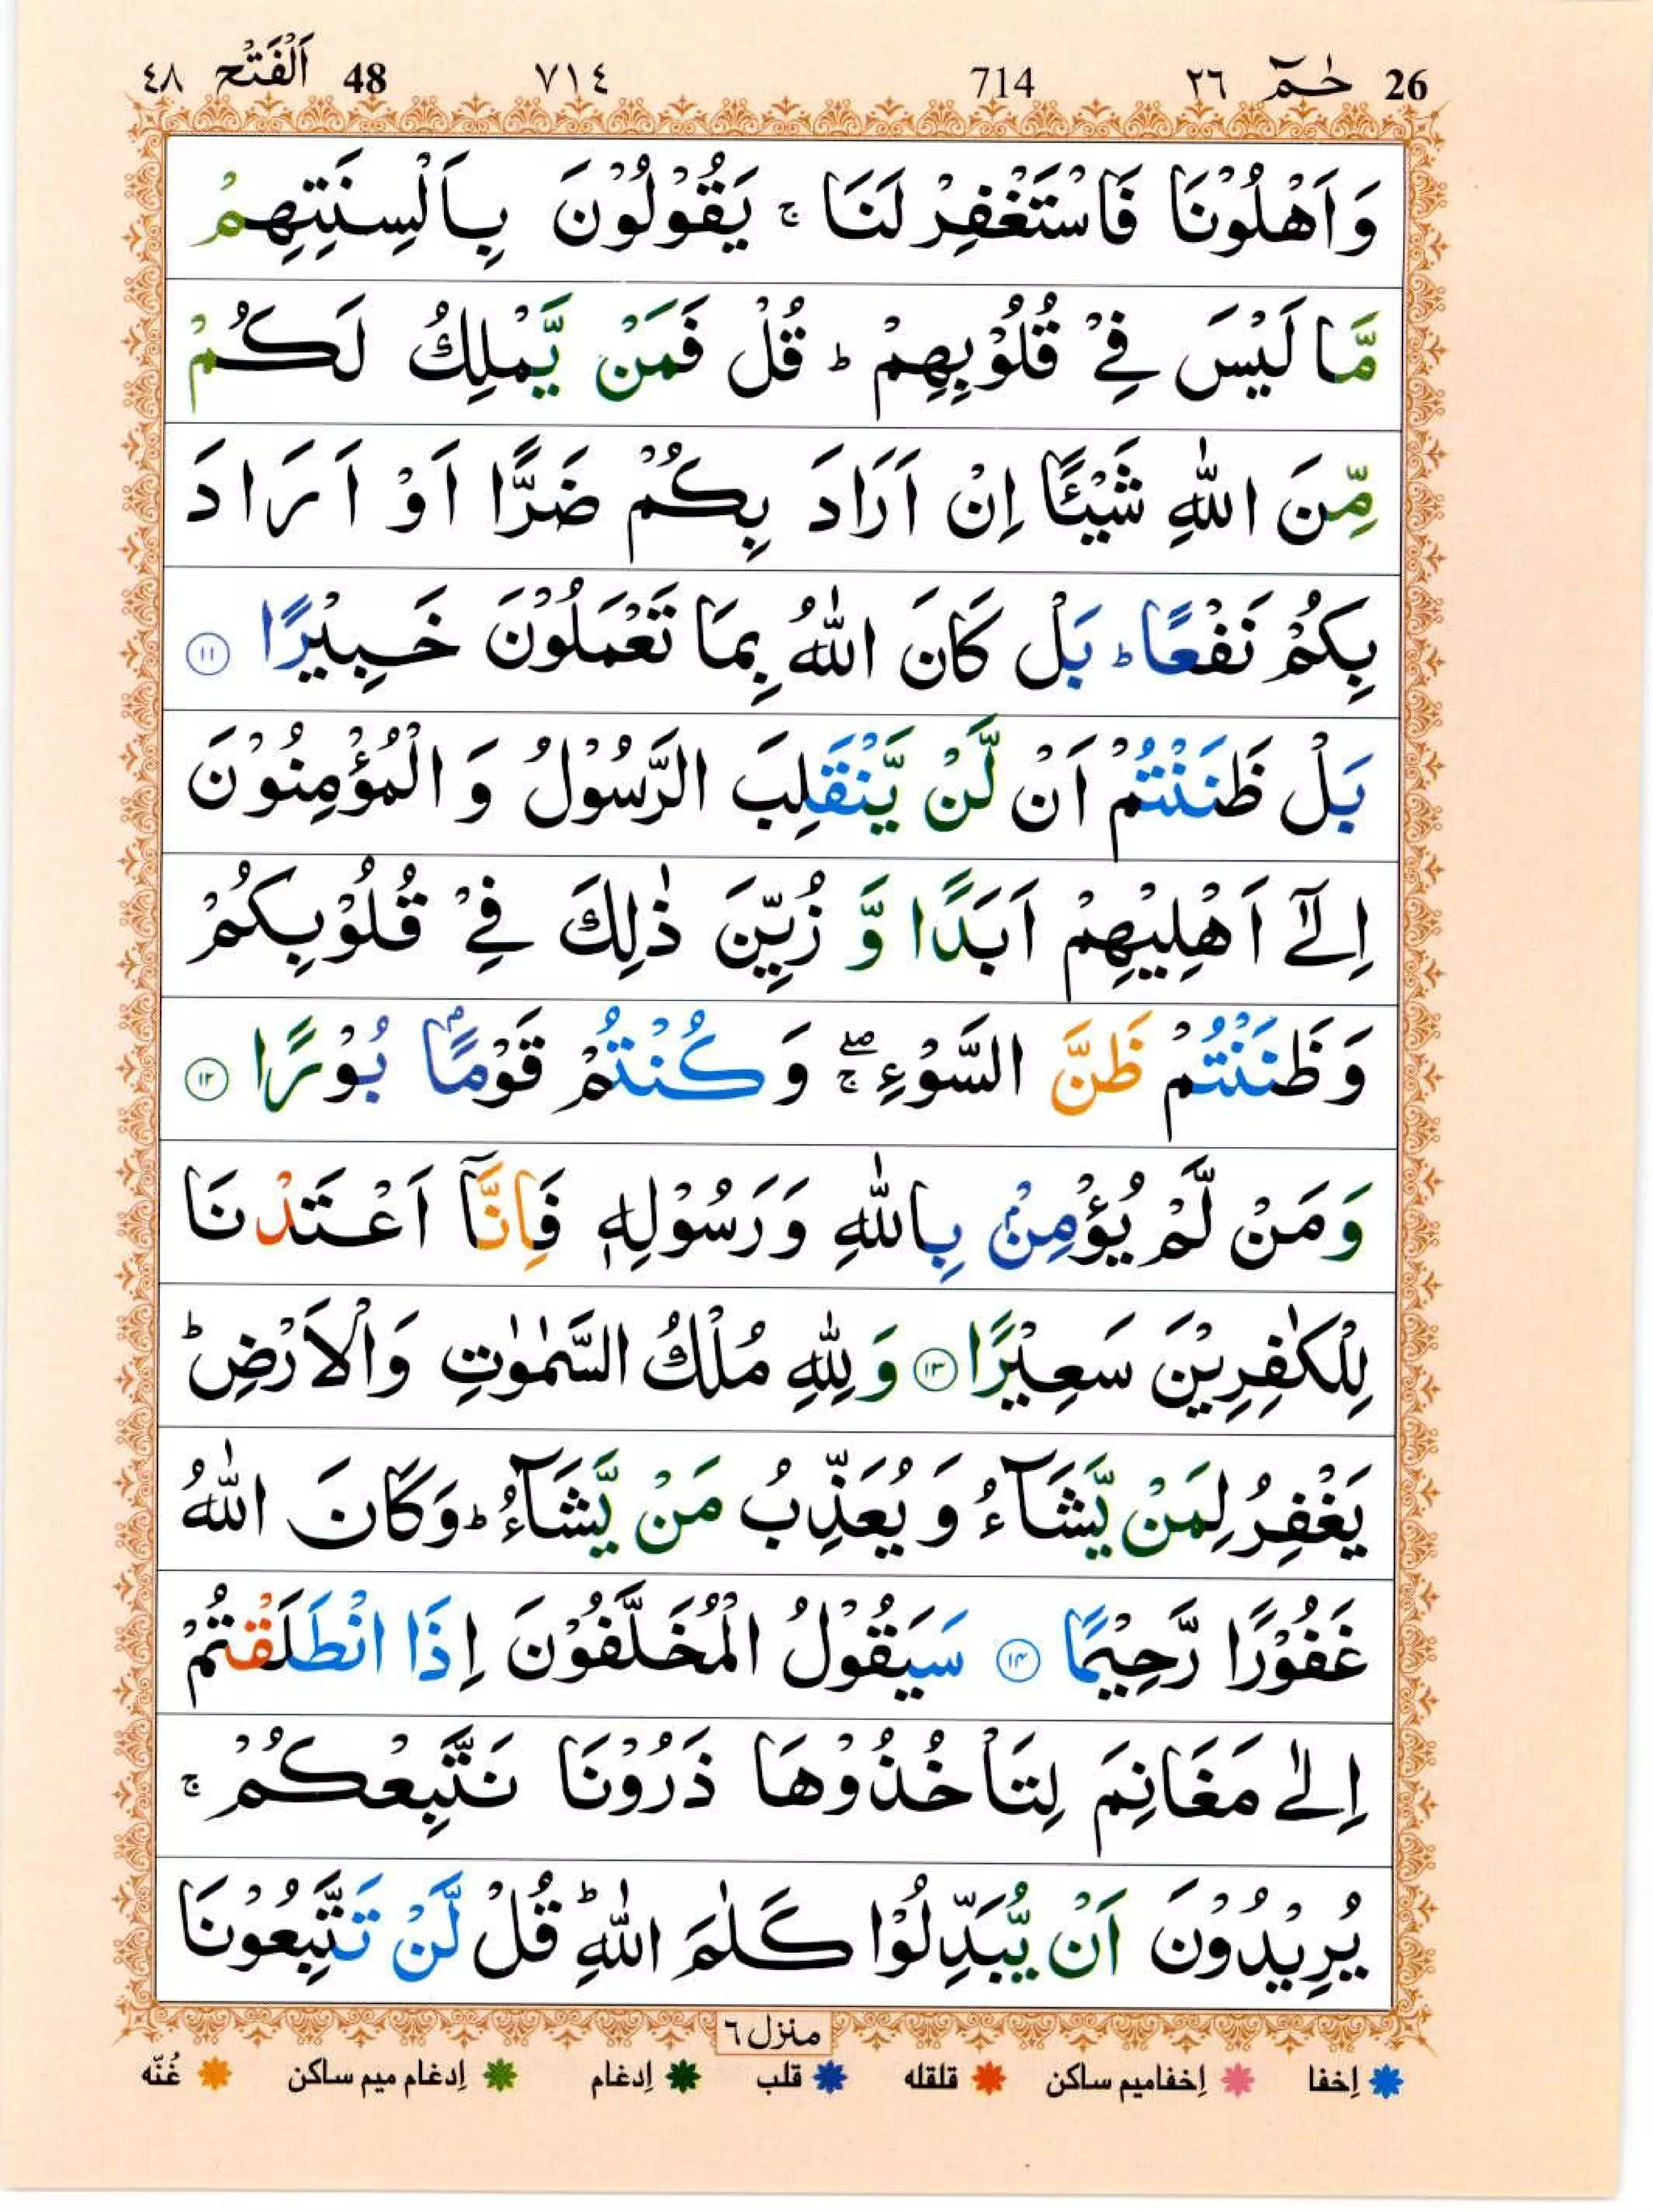 26 حٰمٓ ٢٦ 714 ٧١٤ 48 اَلْفَتْح ٤٨
وَاَهْلُوْنَا فَاسْتَغْفِرْ لَنَا ۚ يَقُوْلُوْنَ بِاَلْسِنَتِهِمْ
مَّا لَيْسَ فِيْ قُلُوْبِهِمْ ؕ قُلْ فَمَنْ يَّمْلِكُ لَكُمْ
مِّنَ اللّٰهِ شَيْـًٔا اِنْ اَرَادَ بِكُمْ ضَرًّا اَوْ اَرَادَ
بِكُمْ نَفْعًا ؕ بَلْ كَانَ اللّٰهُ بِمَا تَعْمَلُوْنَ خَبِيْرًا ۱۱
بَلْ ظَنَنْتُمْ اَنْ لَّنْ يَّنْقَلِبَ الرَّسُوْلُ وَالْمُؤْمِنُوْنَ
اِلٰٓى اَهْلِيْهِمْ اَبَدًا وَّ زُيِّنَ ذٰلِكَ فِيْ قُلُوْبِكُمْ
وَظَنَنْتُمْ ظَنَّ السَّوْءِ ۖۚ وَكُنْتُمْ قَوْمًۢا بُوْرًا ۱۲
وَمَنْ لَّمْ يُؤْمِنْۢ بِاللّٰهِ وَرَسُوْلِهٖ فَاِنَّآ اَعْتَدْنَا
لِلْكٰفِرِيْنَ سَعِيْرًا ۱۳ وَلِلّٰهِ مُلْكُ السَّمٰوٰتِ وَالْاَرْضِ ؕ
يَغْفِرُ لِمَنْ يَّشَآءُ وَيُعَذِّبُ مَنْ يَّشَآءُ ؕ وَكَانَ اللّٰهُ
غَفُوْرًا رَّحِيْمًا ۱۴ سَيَقُوْلُ الْمُخَلَّفُوْنَ اِذَا انْطَلَقْتُمْ
اِلٰى مَغَانِمَ لِتَاْخُذُوْهَا ذَرُوْنَا نَتَّبِعْكُمْ ۚ
يُرِيْدُوْنَ اَنْ يُّبَدِّلُوْا كَلٰمَ اللّٰهِ ؕ قُلْ لَّنْ تَتَّبِعُوْنَا
منزل ٦
إخفا إخفاميم ساكن قلقله قلب إدغام إدغام ميم ساكن غُنّه